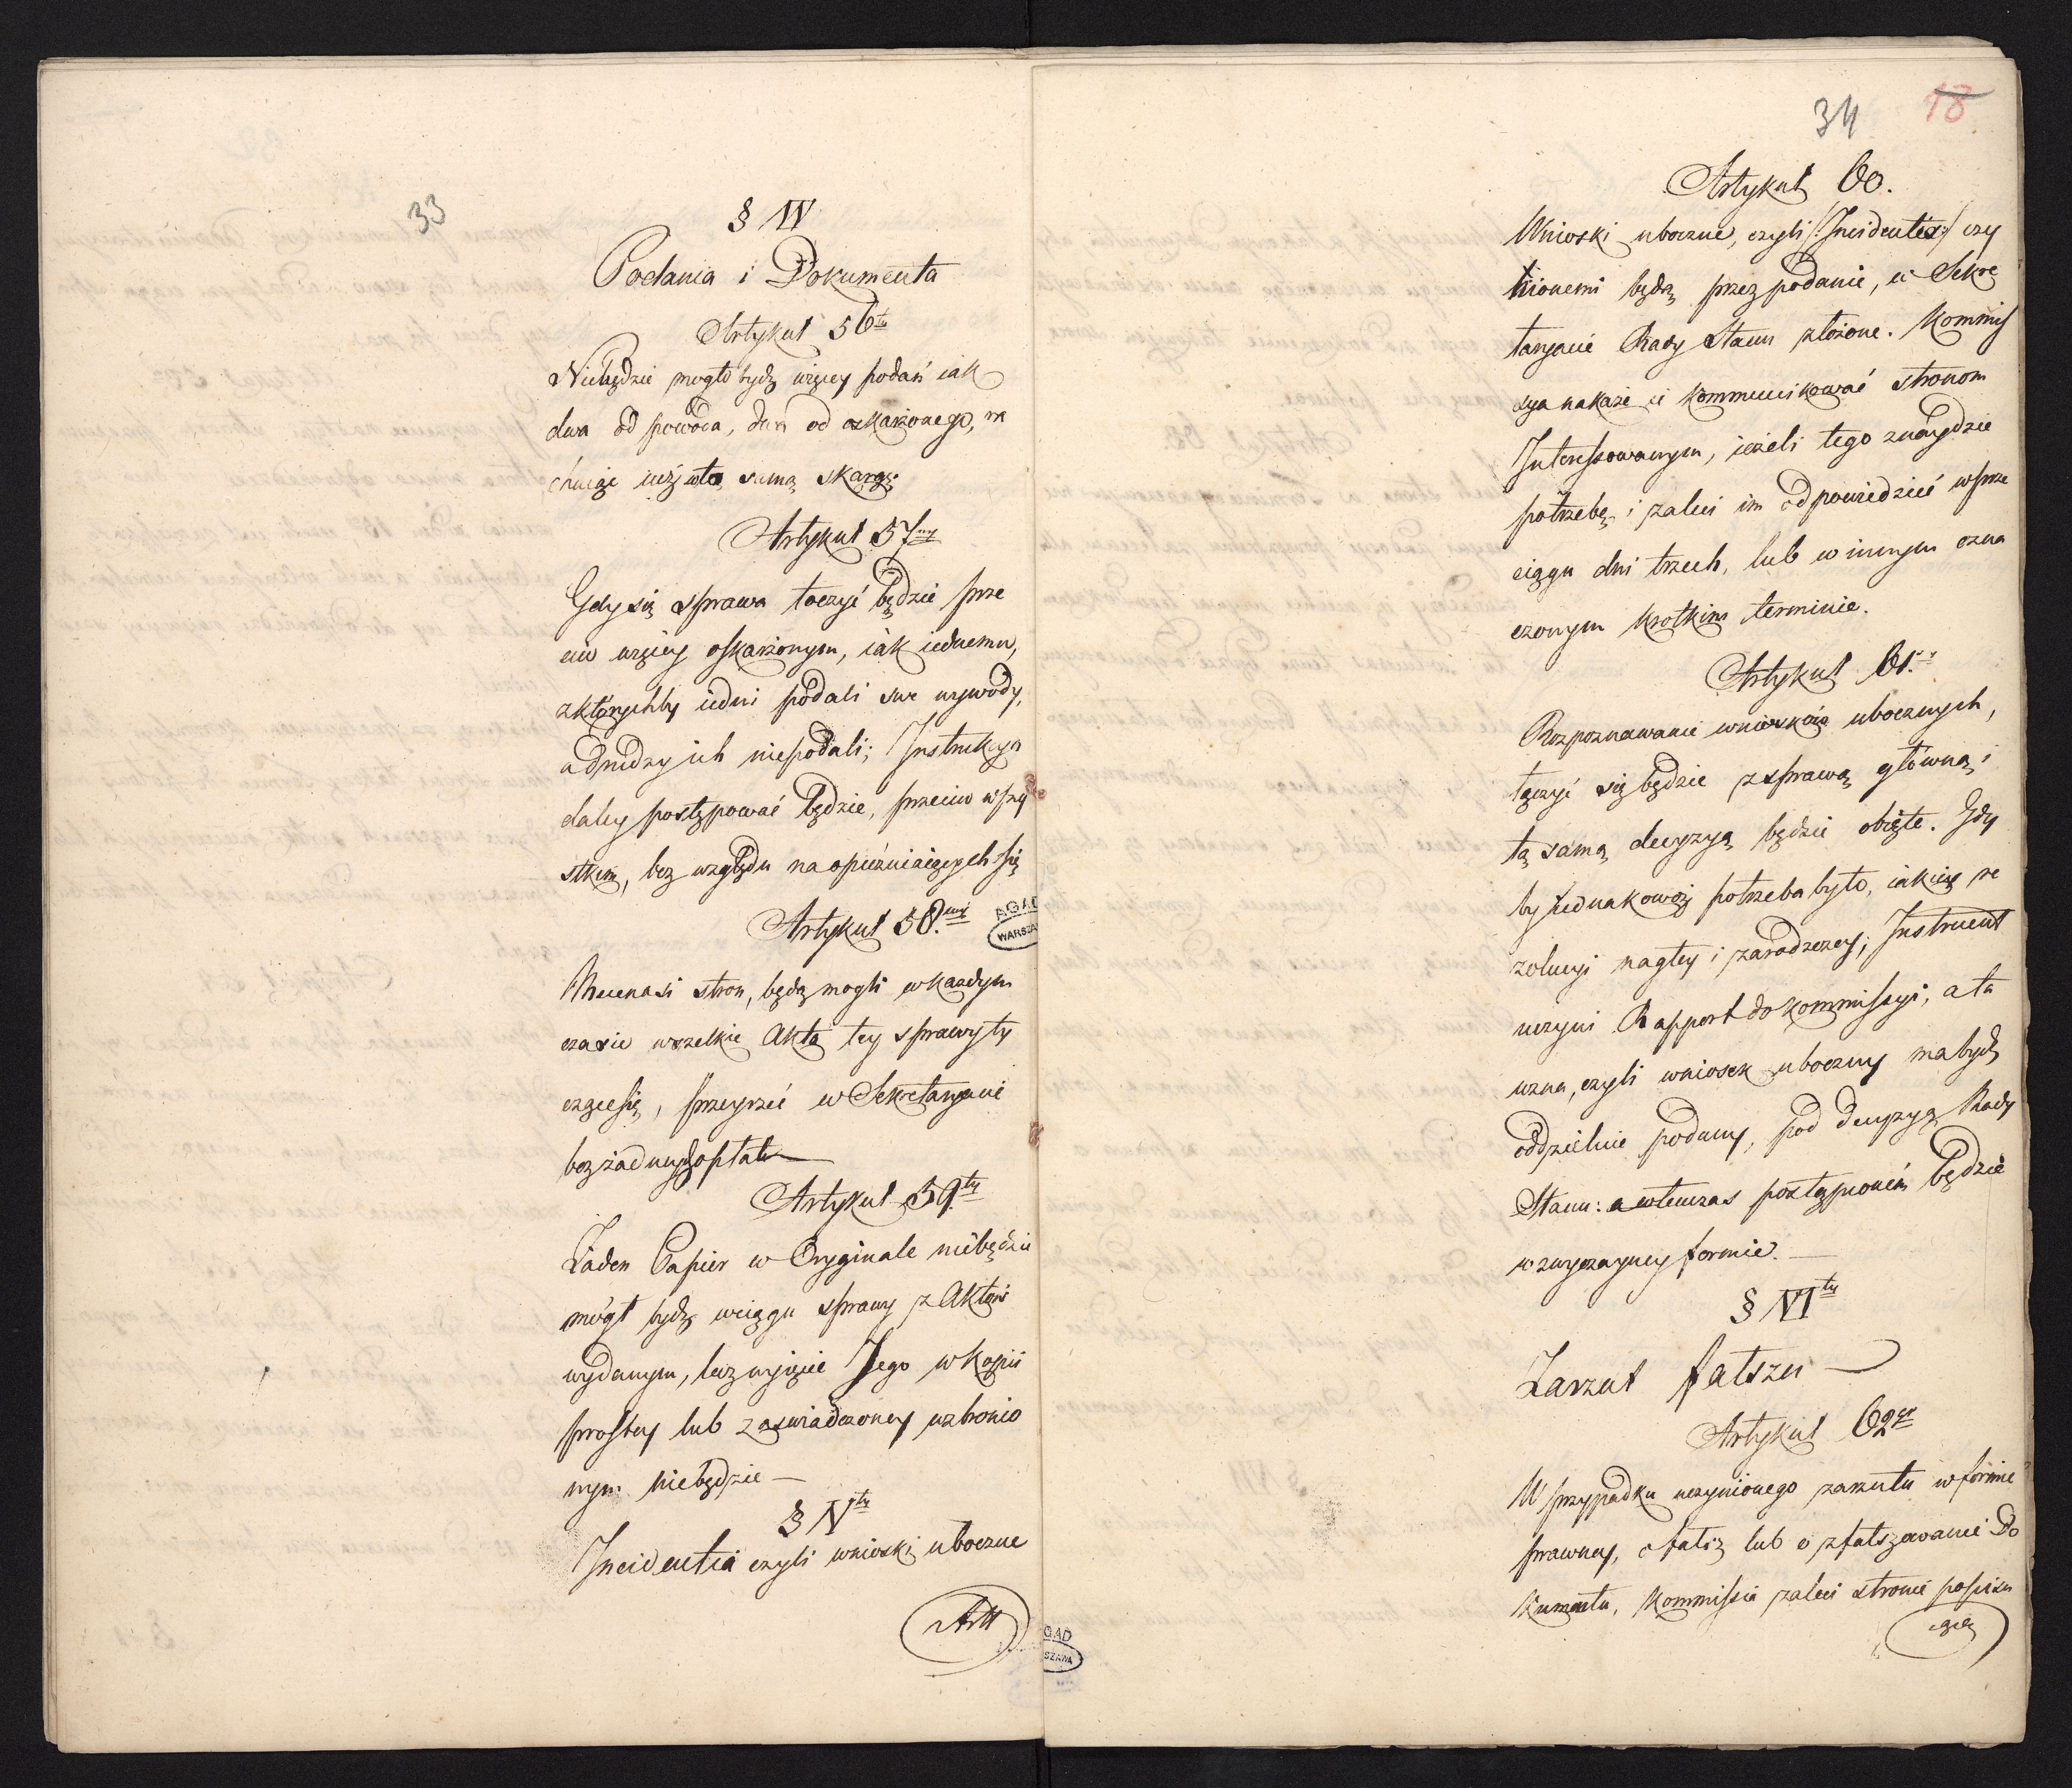 33
§ IV
Podania i Dokumenta
Artykuł 56ty
Niebędzie mogło bydź więcey podań iak
dwa od powoda, dwa od oskarżonego, ra
chuiąc iuż w to samą skargę.
Artykuł 57my
Gdy się sprawa toczyć będzie prze
ciw więcey oskarżonym, iak iednemu,
z którychby iedni podali swe wywody,
a drudzy ich niepodali; Instrukcya
daley postępować będzie, przeciw wszy
stkim, bez względu na opóźniaiących się
Artykuł 58.my
Mecenasi stron, będą mogli w kazdym
czasie wszelkie Akta tey sprawy ty
czące się, przeyrzeć w Sekretaryacie
bez żadney opłaty
Artykuł 59.ty
Żaden Papier w Oryginale niebędzie
mógł bydź w ciągu sprawy z Aktów
wydanym, lecz wyięcie Jego w kopii
prostey lub zaswiadczoney wzbronio
nym niebędzie —
§ Vty
Incidentia czyli wnioski uboczne
Artt
AGAD
WARSZA
34 18
Artykuł 60.
Wnioski uboczne, czyli /:Incidentes:/ czy
nionemi będą przez podanie, w Sekre
taryacie Rady Stanu złożone. Kommis
sya nakaże ie kommunikować stronom
Interessowanym, ieżeli tego znaydzie
potrzebę i zaleci im odpowiedzieć w prze
ciągu dni trzech, lub w innym ozna
czonym krotkim terminie.
Artykuł 61.
Rozpoznawanie wniosków ubocznych,
łączyć się będzie z sprawą główną i
tą samą decyzyą będzie obięte. Gdy
by iednakowoż potrzeba było, iakiey re
zolucyi nagłey i zaradczey; Instruent
uczyni Rapport do Kommissyi, a ta
uzna, czyli wniosek uboczny ma bydź
oddzielnie podany, pod decyzyą Rady
Stanu: a wtenczas postąpionem będzie
w zwyczayney formie. —
§ VIty
Zarzut fałszu —
Artykuł 62gi
W przypadku uczynionego zarzutu w formie
prawney, o fałsz lub o zfałszowanie Do
kumentu, Kommissia zaleci stronie popiera
iącey
GAD
SZAWA